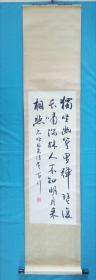 獨坐幽篁里彈琴復
長嘯深林人不知明月来
相照